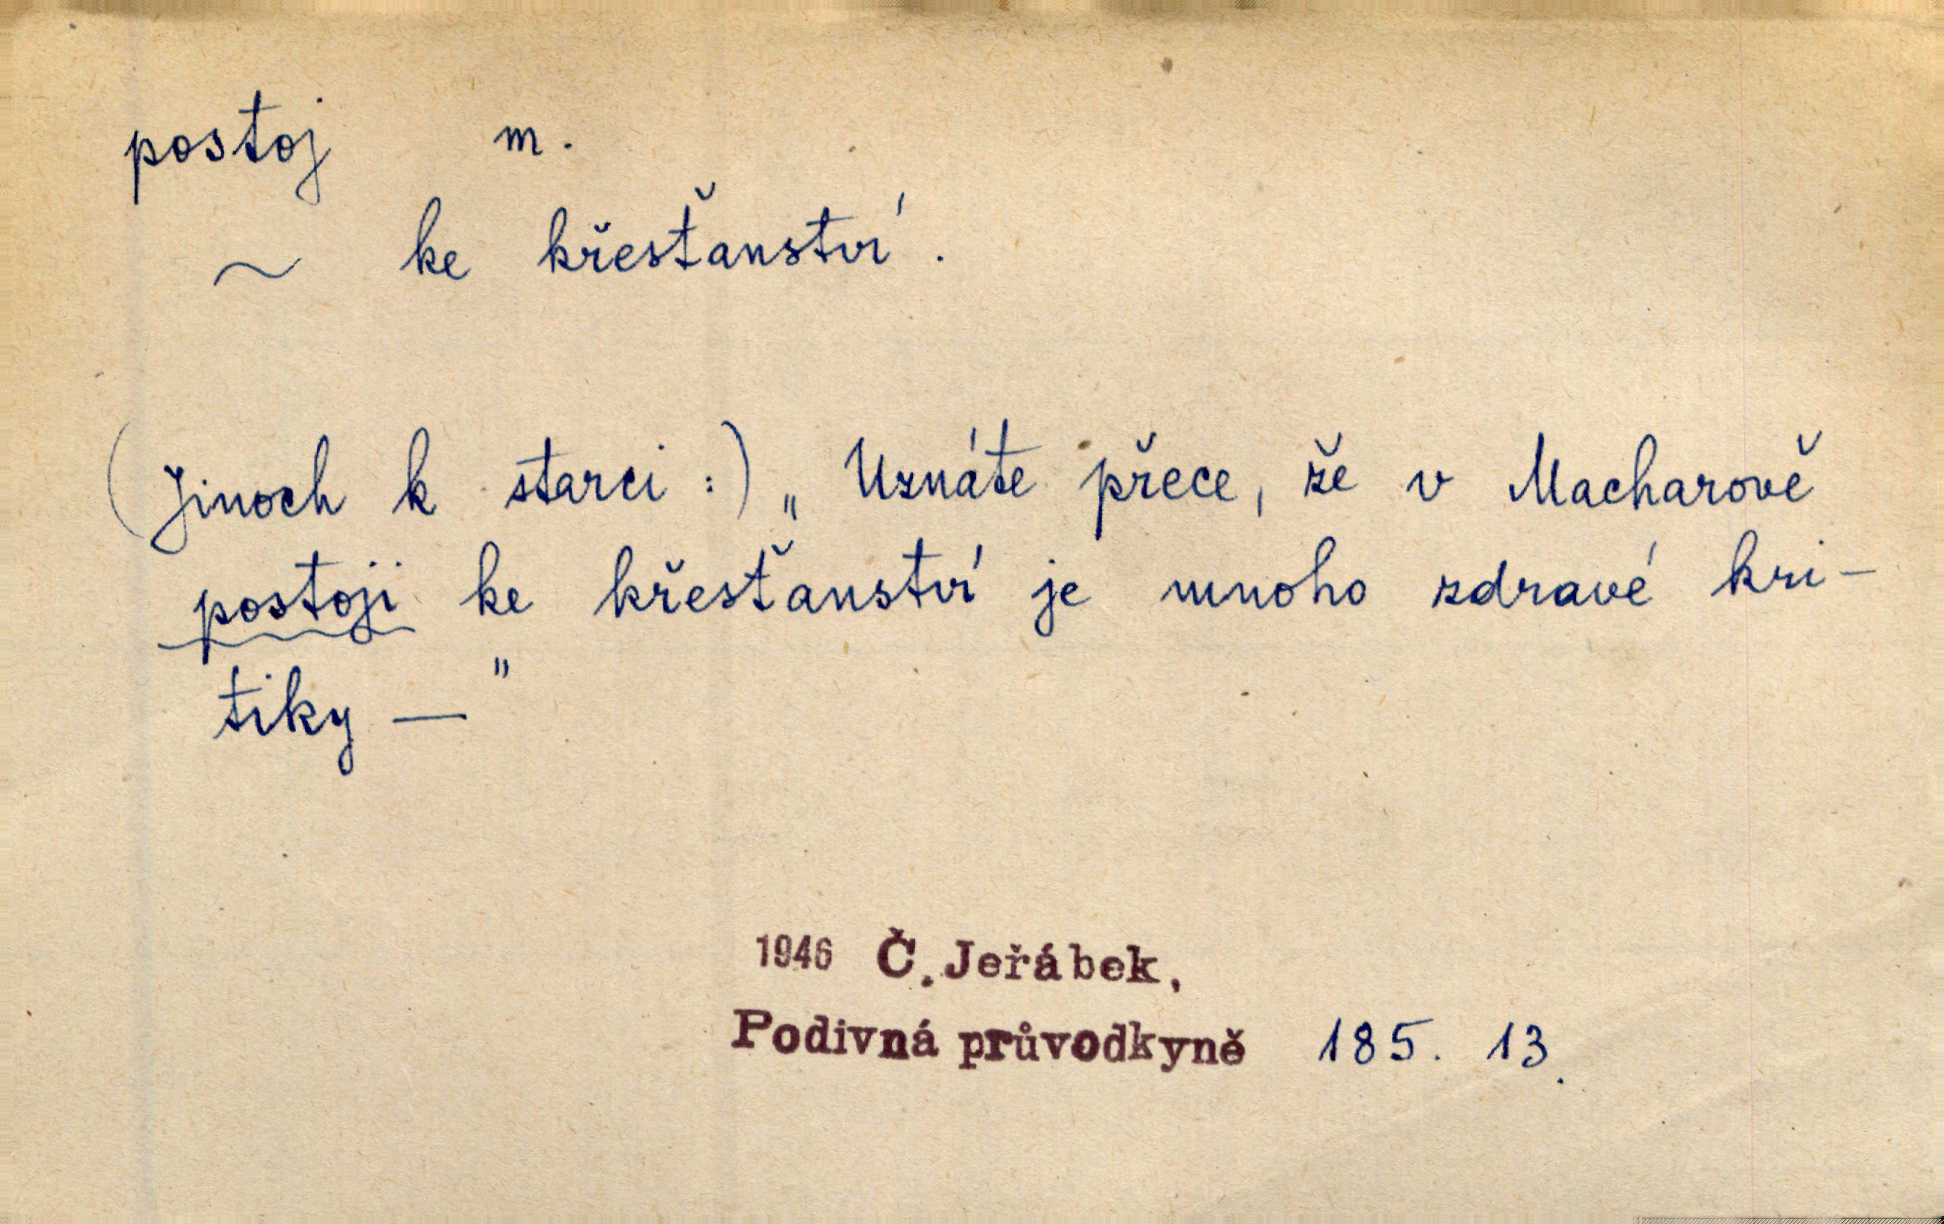 postoj m.
~ ke křesťanství.
(Jinoch k starci:) „Uznáte přece, že v Macharově
postoji ke křesťanství je mnoho zdravé kri-
tiky — "
1946 Č. Jeřábek,
Podivná průvodkyně 185. 13.